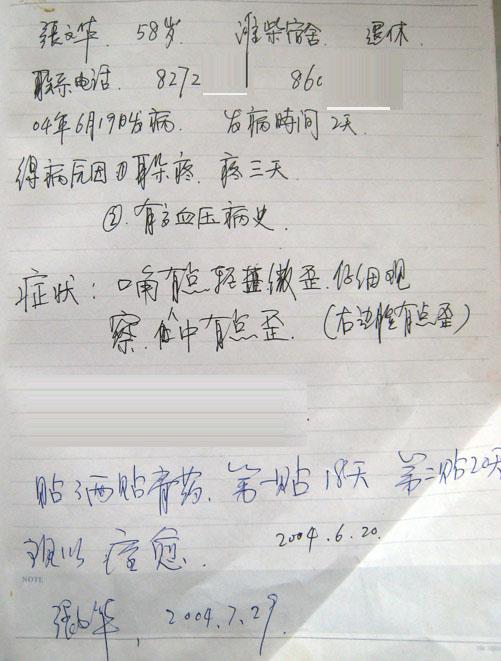 張文华. 58岁. 潍柴宿舍 退休.
联系电话. 8272 860
04年6月19日发病. 发病時间 2天.
得病原因①耳朵疼. 疼三天.
②. 有高血压病史.
症状: 嘴有点轻 微歪. 仔细观
察. 人中有点歪. (右边 有点歪)
贴了两贴膏药. 第一贴 18天 第二贴20天
现以 痊愈. 2004.6.20.
NOTE
張文华. 2004.7.29.